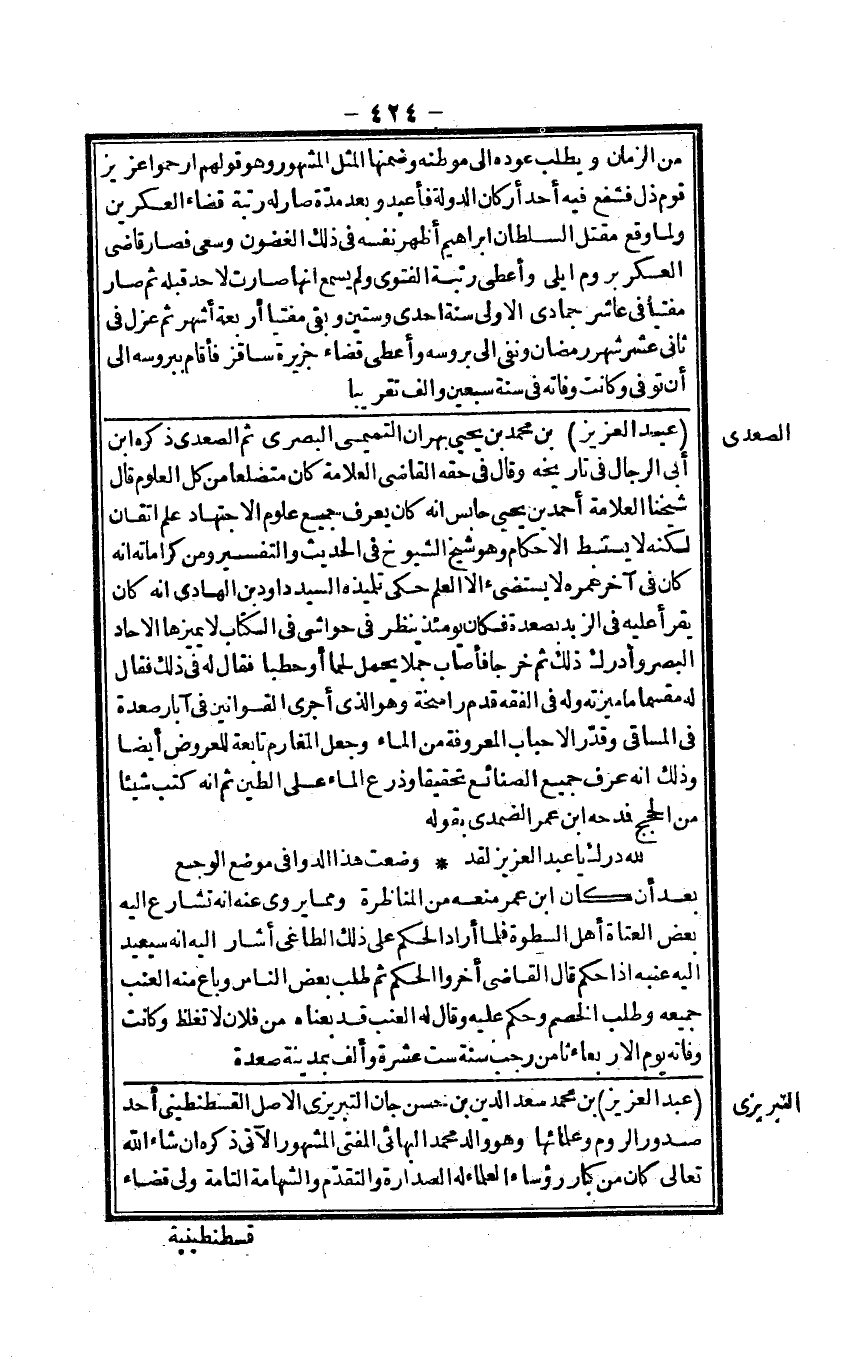 - ٤٢٤ -
من الزمان ويطلب عوده الى موطنه وضمنها المثل المشهور وهو قولهم ارحموا عزيز
قوم ذل فشفع فيه أحد أركان الدولة فأعيد وبعد مدّة صار له رتبة قضاء العسكرين
ولما وقع مقتل السلطان ابراهيم أظهر نفسه فى ذلك الغضون وسعى فصار قاضى
العسكر بروم ايلى وأعطى رتبة الفتوى ولم يسمع انها صارت لاحد قبله ثم صار
مفتيا فى عاشر جمادى الاولى سنة احدى وستين وبقى مفتيا أربعة أشهر ثم عزل فى
ثانى عشر شهر رمضان ونفى الى بروسه وأعطى قضاء جزيرة ساقز فأقام ببروسه الى
أن توفى وكانت وفاته فى سنة سبعين والف تقريبا
الصعدى
(عبد العزيز) بن محمد بن يحيى بهران التميمى البصرى ثم الصعدى ذكره ابن
أبى الرجال فى تاريخه وقال فى حقه القاضى العلامة كان متضلعا من كل العلوم قال
شيخنا العلامة أحمد بن يحيى حابس انه كان يعرف جميع علوم الاجتهاد علم اتقان
لكنه لا يستنبط الاحكام وهو شيخ الشيوخ فى الحديث والتفسير ومن كراماته انه
كان فى آخر عمره لا يستضىء الا العلم حكى تلميذه السيد داود بن الهادى انه كان
يقرأ عليه فى الزبد بصعدة فكان يومئذ ينظر فى حواشى فى الكتاب لا يميزها الا حاد
البصر وأدرك ذلك ثم خرجا فأصاب جملا يحمل لحما أو حطبا فقال له فى ذلك فقال
له مقسما ما ميزته وله فى الفقه قدم راسخة وهو الذى أجرى القوانين فى آبار صعدة
فى المساقى وقدّر الاحباب المعروفة من الماء وجعل المغارم تابعة للعروض أيضا
وذلك انه عرف جميع الصنائع تحقيقا وذرع الماء على الطين ثم انه كتب شيئا
من الحجج فمدحه ابن عمر الضمدى بقوله
لله درك يا عبد العزيز لقد * وضعت هذا الدوا فى موضع الوجع
بعد أن كان ابن عمر منعه من المناظرة ومما يروى عنه انه تشارع اليه
بعض العتاة أهل السطوة فلما أراد الحكم على ذلك الطاغى أشار اليه انه سيعيد
اليه عنبه اذا حكم قال القاضى أخروا الحكم ثم طلب بعض الناس وباع منه العنب
جميعه وطلب الخصم وحكم عليه وقال له العنب قد بعناه من فلان لا تغلط وكانت
وفاته يوم الاربعاء ثامن رجب سنة ست عشرة وألف بمدينة صعدة
التبريزى
(عبد العزيز) بن محمد سعد الدين بن حسن جان التبريزى الاصل القسطنطينى أحد
صدور الروم وعلمائها وهو والد محمد البهائى المفتى المشهور الآتى ذكره ان شاء الله
تعالى كان من كبار رؤساء العلماء له الصدارة والتقدّم والشهامة التامة ولى قضاء
قسطنطينية